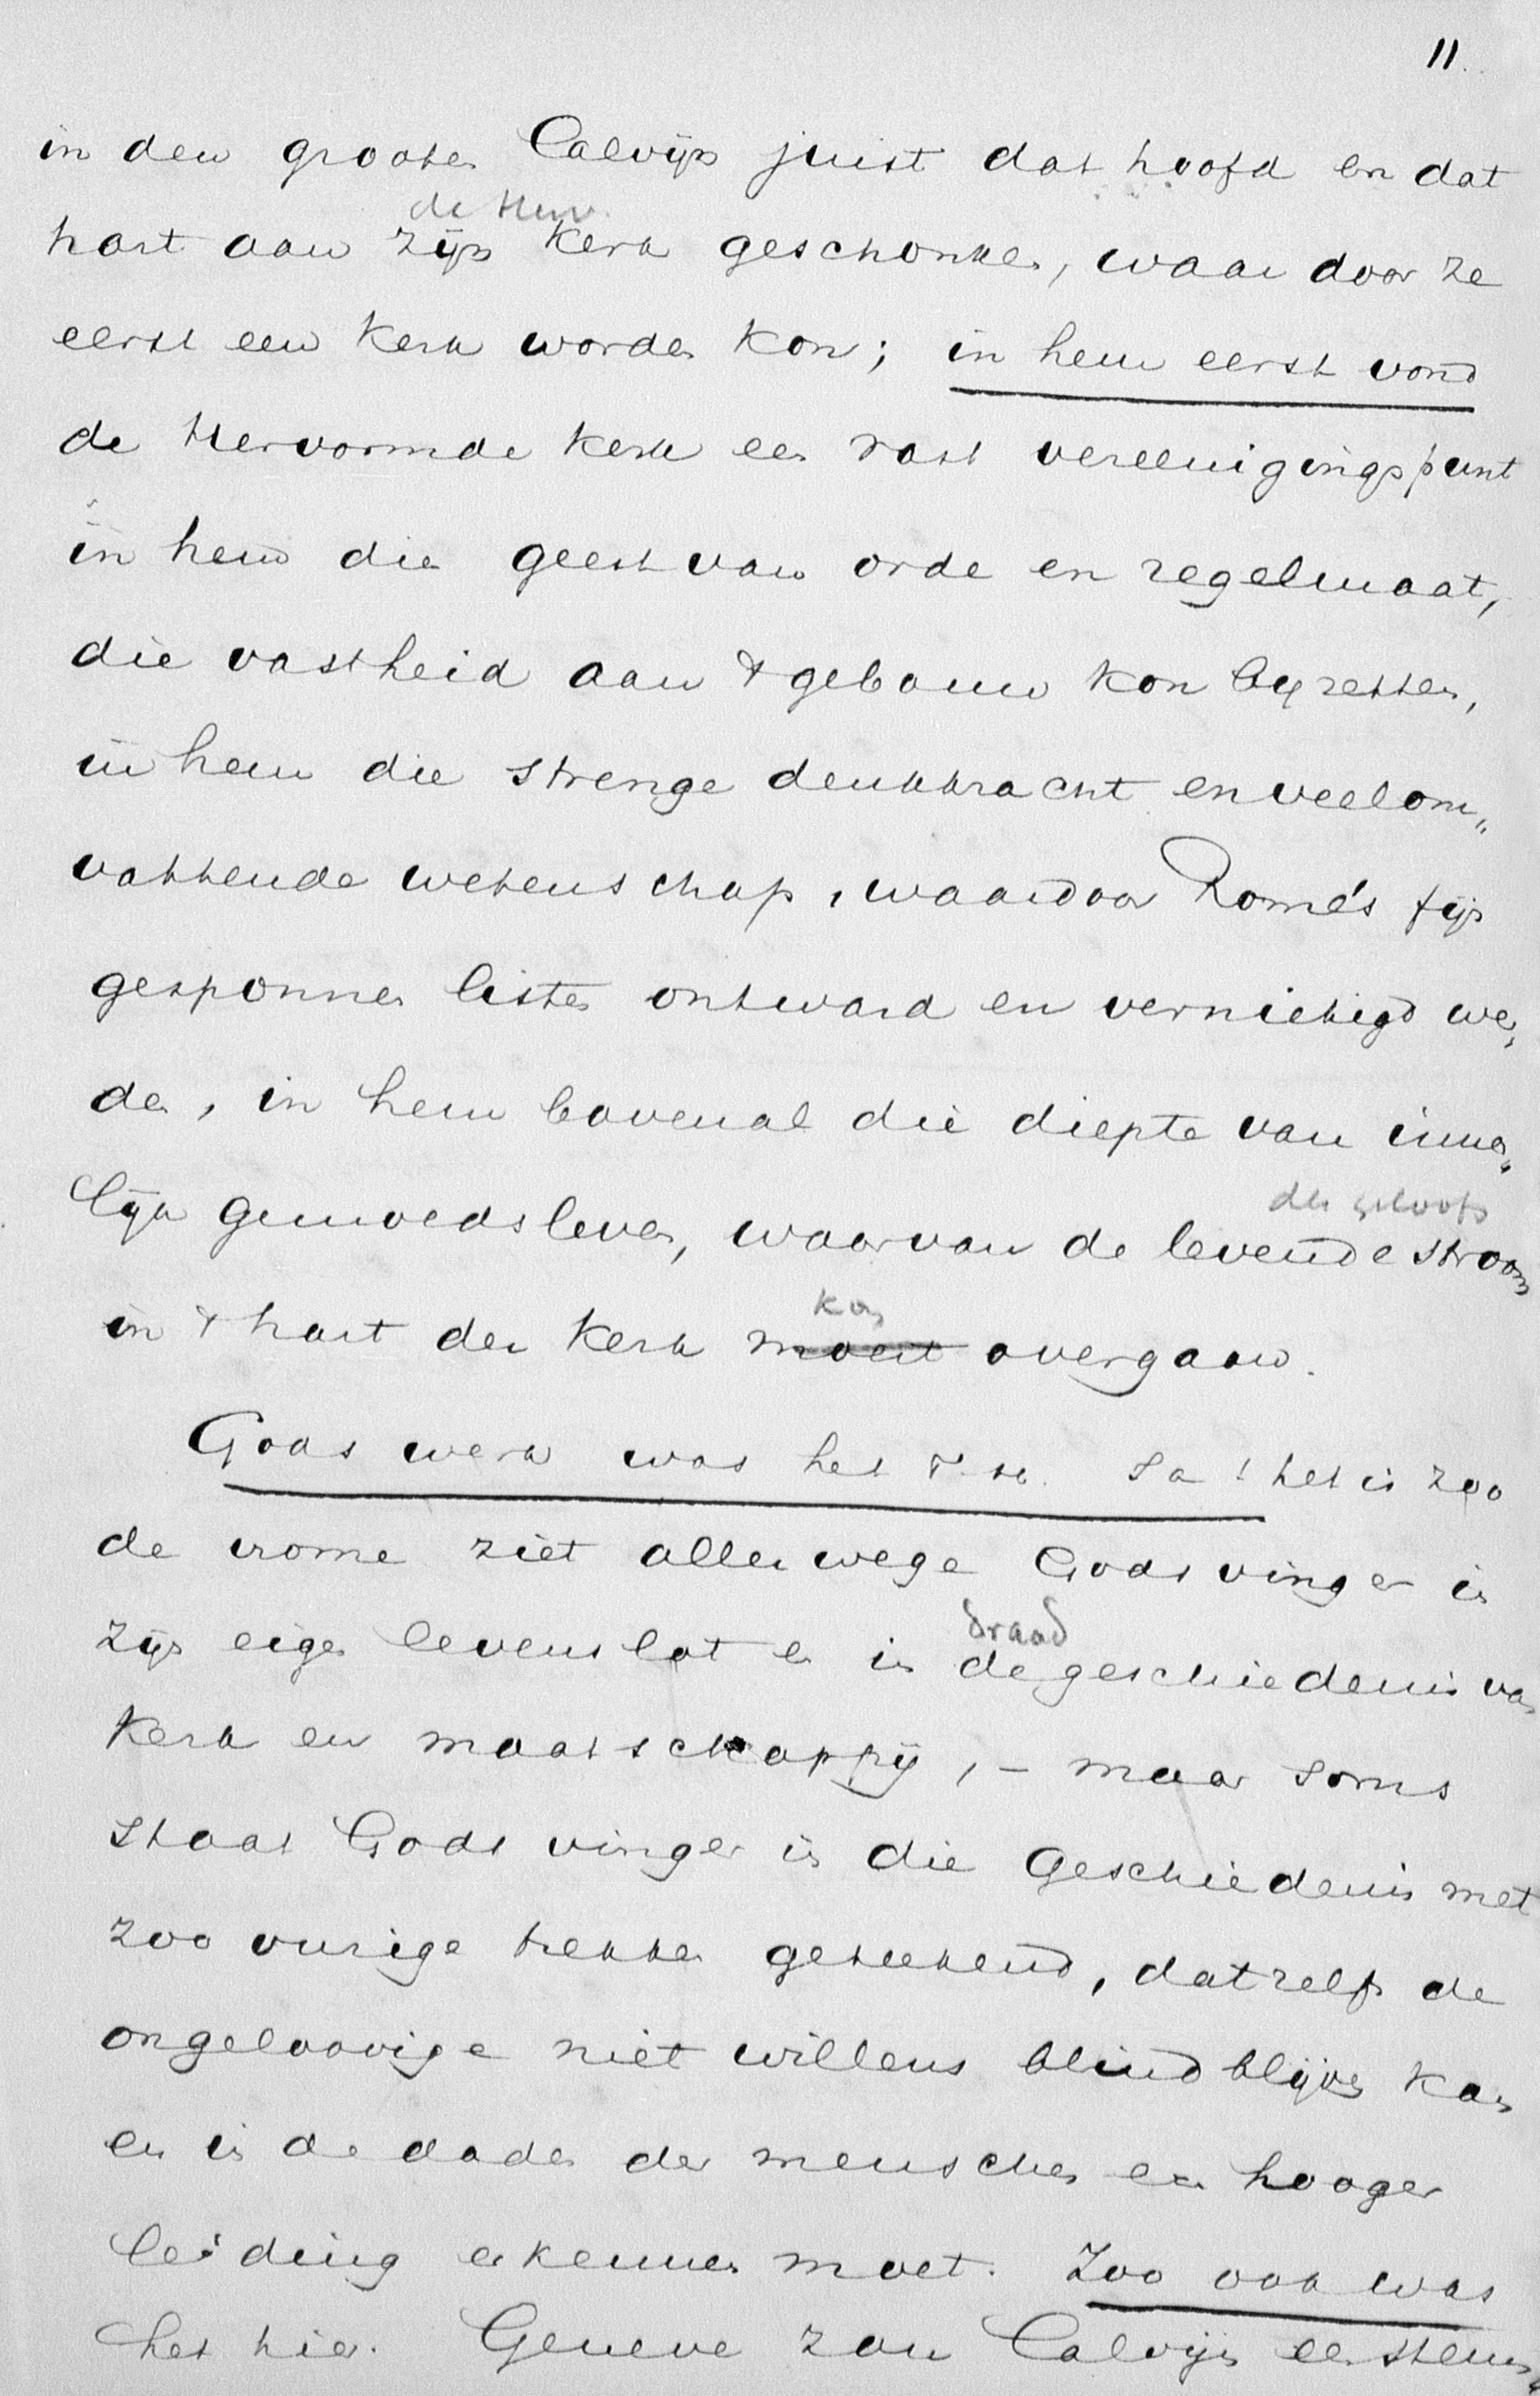 11.
in den grooten Calvijn juist dat hoofd en dat
de Herv.
hart aan zijn Kerk geschonken, waardoor ze
eerst een Kerk worden kon; in hem eerst vond
de Hervormde Kerk een vast vereenigingspunt
in hem die geest van orde en regelmaat,
die vastheid aan 't gebouw kon bijzetten,
in hem die strenge denkkracht en veelom„
vattende wetenschap, waardoor Rome's fijn
gesponnen listen ontward en vernietigd wer„
den, in hem bovenal die diepte van inner„
des geloofs
lijk gemoedsleven, waarvan de levende stroom
kon
in 't hart der Kerk moest overgaan.
Gods werk was het Ja! het is zoo
de vrome ziet allerwege Gods vinger in
draad
zijn eigen levenslot en in de geschiedenis van
Kerk en maatschappij, – maar soms
staat Gods vinger in die geschiedenis met
zoo vurige trekken geteekend, dat zelfs de
ongeloovige niet willens blind blijven kan
en in de daden der menschen een hooger
leiding erkennen moet. Zoo ook was
het hier. Geneve zou Calvijn een steun„